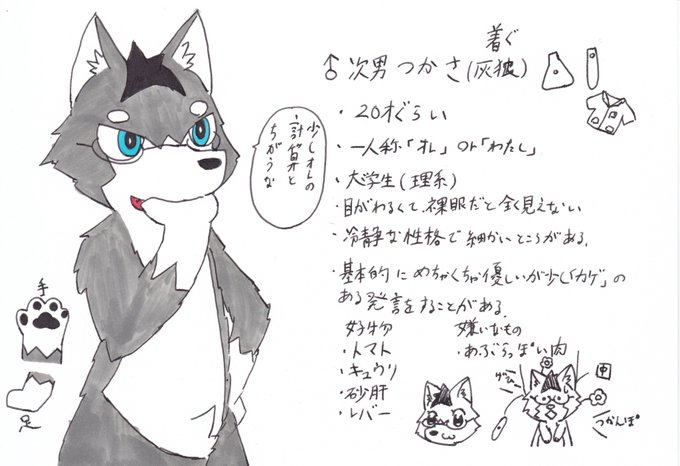 着ぐ
♂次男 つかさ(灰狼)
・20才ぐらい
・一人称「オレ」or「わたし」
・大学生(理系)
・目がわるくて、裸眼だと全く見えない
・冷静な性格で細かいところがある。
・基本的にめちゃくちゃ優しいが少し「カゲ」の
ある発言をすることがある。
好物
・トマト
・キュウリ
・砂肝
・レバー
嫌いなもの
・あぶらっぽい肉
少しオレの
計算と
ちがうな
手
足
中
つかんぽ